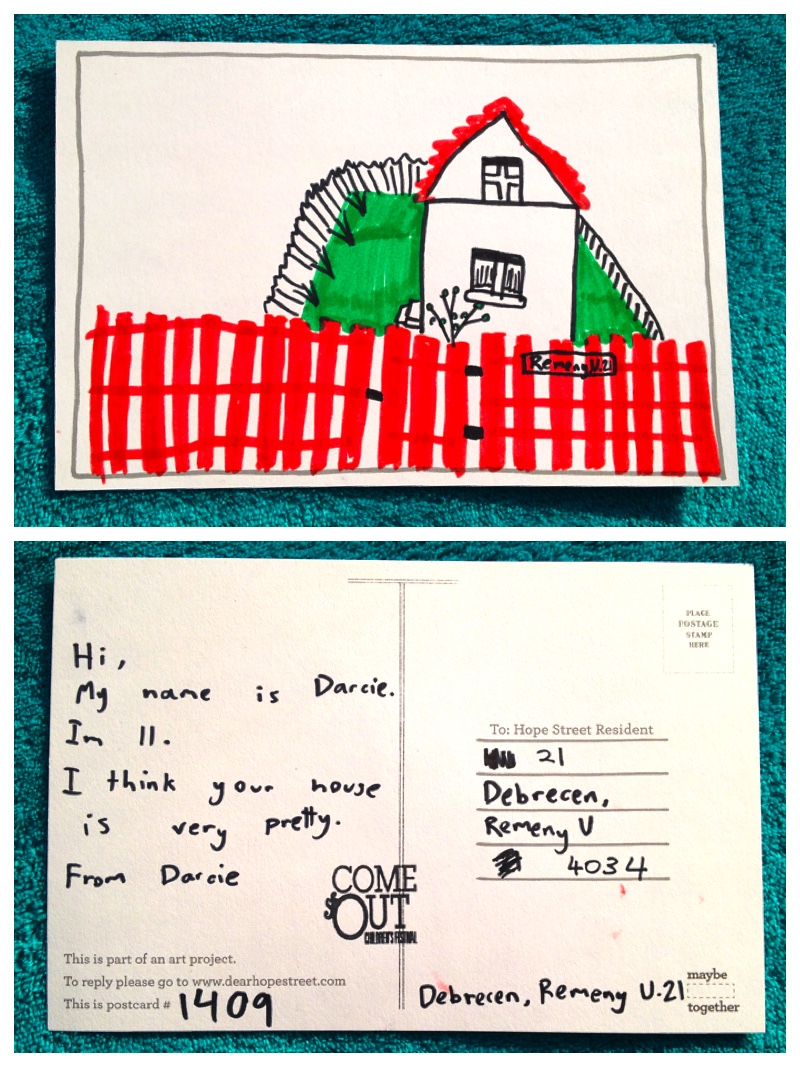 Remeny U.21
Hi,
My name is Darcie.
Im 11.
I think your house
is very pretty.
From Darcie
COME
OUT
CHILDREN'S FESTIVAL
This is part of an art project.
To reply please go to www.dearhopestreet.com
This is postcard # 1409
PLACE
POSTAGE
STAMP
HERE
To: Hope Street Resident
21
Debrecen,
Remeny U
4034
Debrecen, Remeny U.21
maybe
together